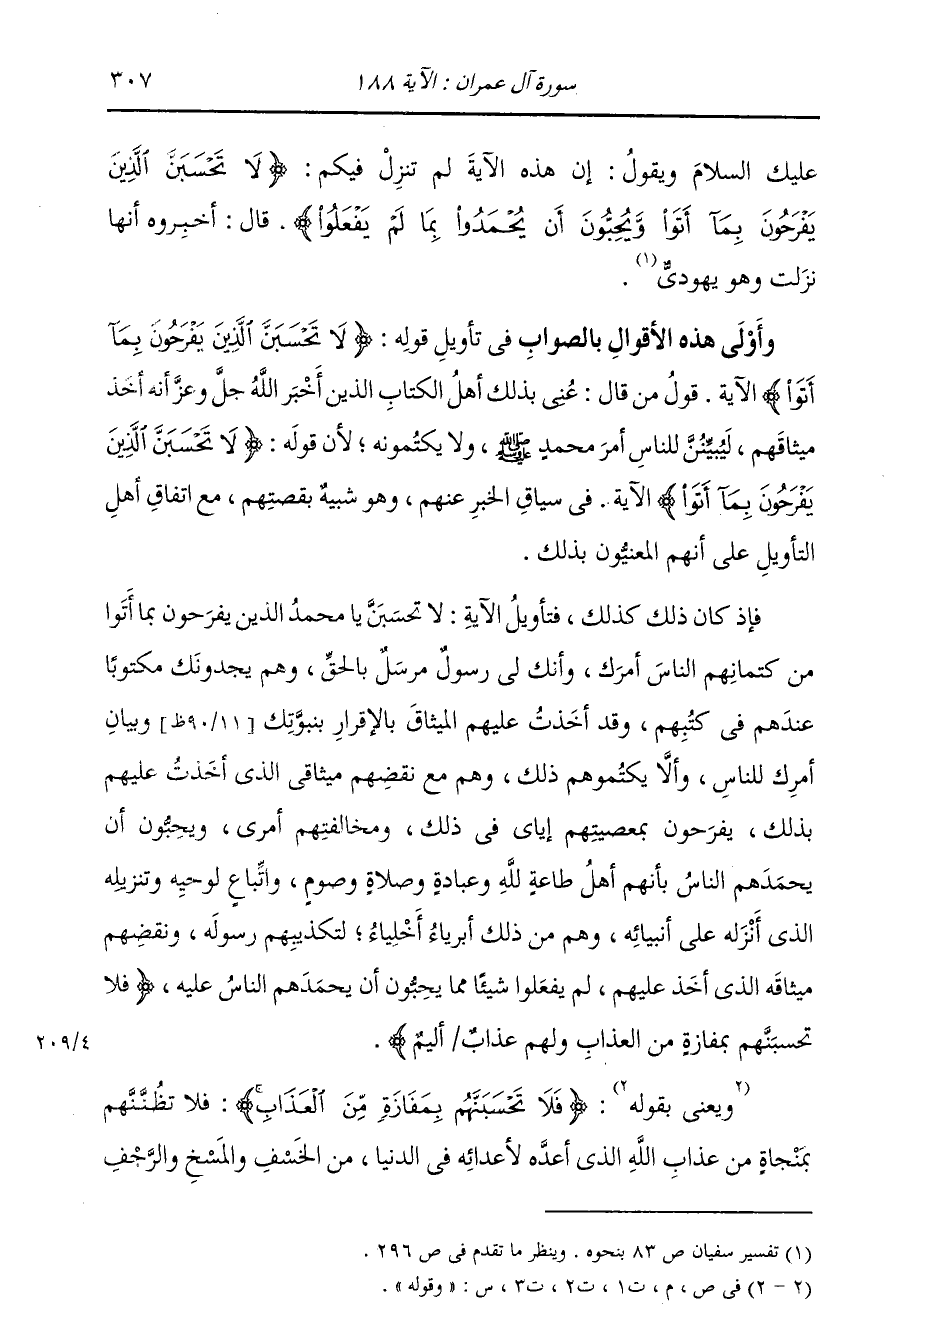 سورة آل عمران : الآية ١٨٨
٣٠٧
عليك السلامَ ويقولُ : إن هذه الآيةَ لم تنزِلْ فيكم : ﴿ لَا تَحْسَبَنَّ ٱلَّذِينَ
يَفْرَحُونَ بِمَآ أَتَوا۟ وَّيُحِبُّونَ أَن يُحْمَدُوا۟ بِمَا لَمْ يَفْعَلُوا۟ ﴾ . قال : أخبِروه أنها
نزَلت وهو يهودىٌّ(١) .
وأَوْلَى هذه الأقوالِ بالصوابِ فى تأويلِ قولِه : ﴿ لَا تَحْسَبَنَّ ٱلَّذِينَ يَفْرَحُونَ بِمَآ
أَتَوا۟ ﴾ الآية . قولُ من قال : عُنى بذلك أهلُ الكتابِ الذين أَخْبَر اللَّهُ جلَّ وعزَّ أنه أخَذ
ميثاقَهم ، لَيُبَيِّنُنَّ للناسِ أمرَ محمدٍ ﷺ ، ولا يكتُمونه ؛ لأن قولَه : ﴿ لَا تَحْسَبَنَّ ٱلَّذِينَ
يَفْرَحُونَ بِمَآ أَتَوا۟ ﴾ الآية . فى سياقِ الخبرِ عنهم ، وهو شبيهٌ بقصتِهم ، مع اتفاقِ أهلِ
التأويلِ على أنهم المعنيُّون بذلك .
فإذ كان ذلك كذلك ، فتأويلُ الآيةِ : لا تحسَبَنَّ يا محمدُ الذين يفرَحون بما أَتَوا
من كتمانِهم الناسَ أمرَك ، وأنك لى رسولٌ مرسَلٌ بالحقِّ ، وهم يجدونَك مكتوبًا
عندَهم فى كتُبِهم ، وقد أخَذتُ عليهم الميثاقَ بالإقرارِ بنبوَّتِك [ ٩٠/١١ظ] وبيانِ
أمرِك للناسِ ، وألَّا يكتُموهم ذلك ، وهم مع نقضِهم ميثاقى الذى أخَذتُ عليهم
بذلك ، يفرَحون بمعصيتِهم إياى فى ذلك ، ومخالفتِهم أمرى ، ويحبُّون أن
يحمَدَهم الناسُ بأنهم أهلُ طاعةٍ للَّهِ وعبادةٍ وصلاةٍ وصومٍ ، واتِّباعٍ لوحيِه وتنزيلِه
الذى أَنْزَله على أنبيائِه ، وهم من ذلك أبرياءُ أَخْلِياءُ ؛ لتكذيبِهم رسولَه ، ونقضِهم
ميثاقَه الذى أخَذ عليهم ، لم يفعَلوا شيئًا مما يحبُّون أن يحمَدَهم الناسُ عليه ، ﴿ فلا
تحسبَنَّهم بمفازةٍ من العذابِ ولهم عذابٌ/ أليمٌ ﴾ .
٢٠٩/٤
(٢) ويعنى بقوله(٢) : ﴿ فَلَا تَحْسَبَنَّهُم بِمَفَازَةٍ مِّنَ ٱلْعَذَابِ ۖ ﴾ : فلا تظُنَّنَّهم
بمَنْجاةٍ من عذابِ اللَّهِ الذى أعدَّه لأعدائِه فى الدنيا ، من الخَسْفِ والمَسْخِ والرَّجْفِ
(١) تفسير سفيان ص ٨٣ بنحوه . وينظر ما تقدم فى ص ٢٩٦ .
(٢ - ٢) فى ص ، م ، ت١ ، ت٢ ، ت٣ ، س : « وقوله » .